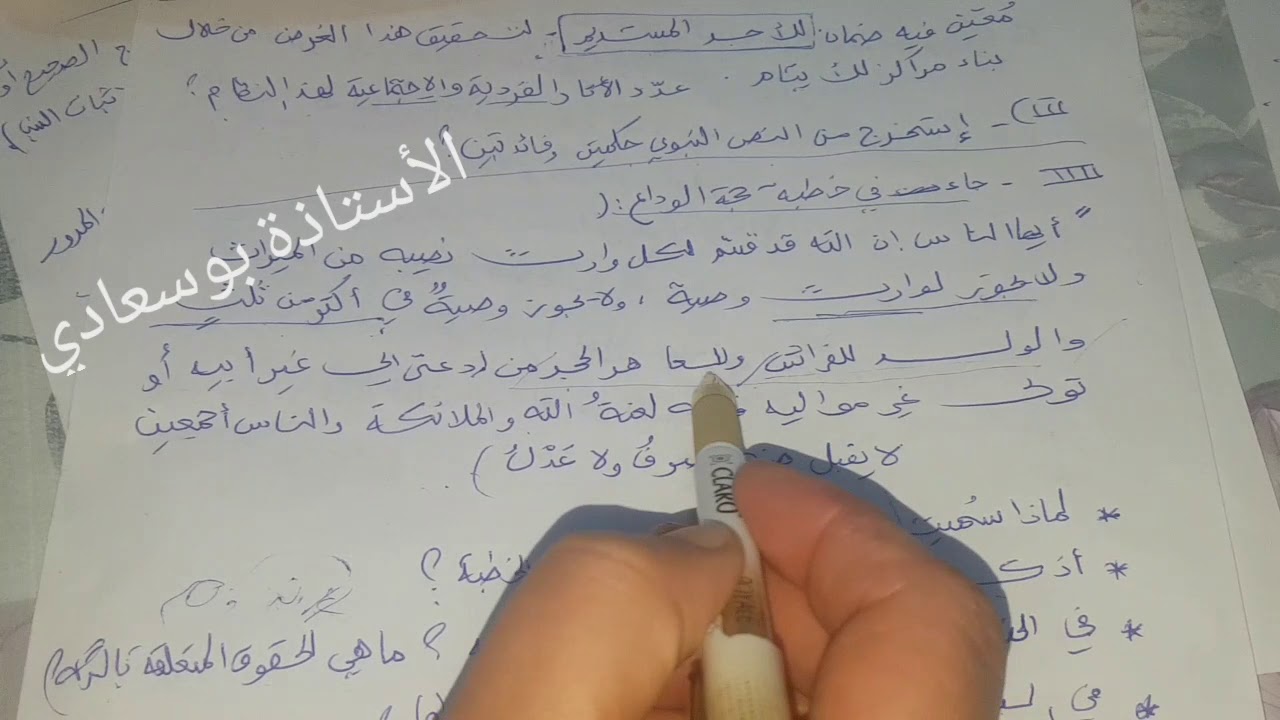 مُعيّن فيه ضمان للأجر المستديم - لتحقيق هذا الغرض من خلال
بناء مراكز لليتام. عدّد الآثار الفردية والاجتماعية لهذا النظام؟
III) - إستخرج من النص النبوي حكمين وفائدتين؟
IIII - جاء في خطبة حجة الوداع: (
" أيها الناس إن الله قد قسّم لكل وارث نصيبه من الميراث
ولا يجوز لوارث وصية، ولا يجوز وصيةٌ في أكثر من ثُلث
والولد للفراش وللعاهر الحجر من إدعى إلى غير أبيه أو
تولى غير مواليه لعنةُ الله والملائكة والناس أجمعين
لا يقبل صرفُ ولا عَدْلُ)
* لماذا سُميت
* أذك الخطبة؟
* في ؟ ما هي الحقوق المتعلقة بالتركة)
* في
ج الصحيح أو
المدور
الأستاذة بوسعادي
CLARO